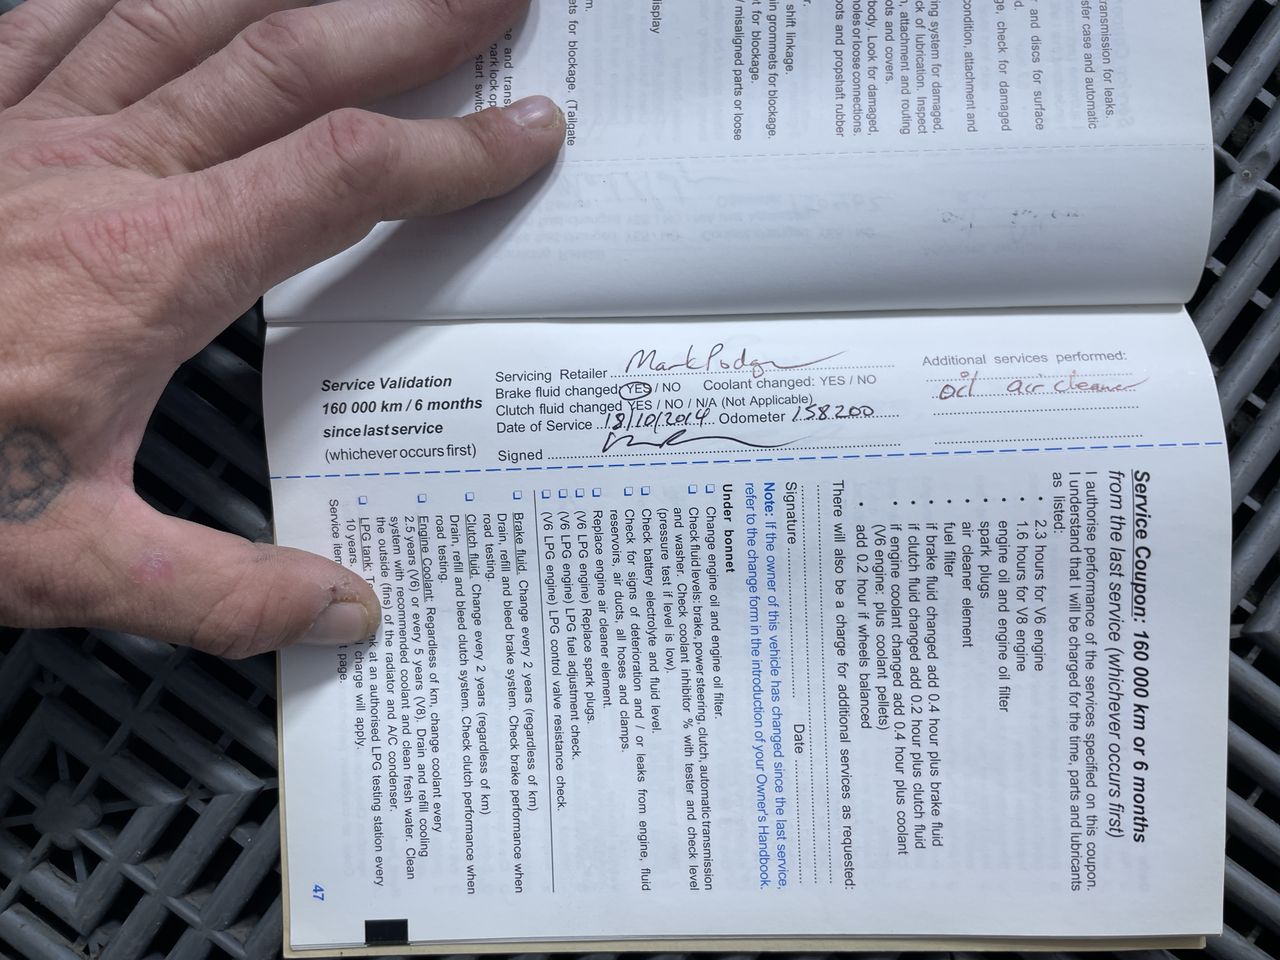 transmission for leaks.
sfer case and automatic
r and discs for surface
d.
ge check for damaged
condition, attachment and
ing system for damaged,
ck of lubrication. Inspect
n, attachment and routing
ots and covers.
body. Look for damaged,
holes or loose connections.
ots and propshaft rubber
r.
shift linkage.
in grommets for blockage.
t for blockage.
/ misaligned parts or loose
display
m.
ets for blockage. (Tailgate
e and trans
park lock op
start switc
Service Validation
160 000 km / 6 months
since last service
(whichever occurs first)
Servicing Retailer Mark
Brake fluid changed YES / NO Coolant changed: YES / NO
Clutch fluid changed YES / NO / N/A (Not Applicable)
Date of Service 18/10/2014 Odometer 158200
Signed
Additional services performed:
oil air cleaner
Service Coupon: 160 000 km or 6 months
from the last service (whichever occurs first)
I authorise performance of the services specified on this coupon.
I understand that I will be charged for the time, parts and lubricants
as listed:
• 2.3 hours for V6 engine
• 1.6 hours for V8 engine
• engine oil and engine oil filter
• spark plugs
• air cleaner element
• fuel filter
• if brake fluid changed add 0.4 hour plus brake fluid
• if clutch fluid changed add 0.2 hour plus clutch fluid
• if engine coolant changed add 0.4 hour plus coolant
(V6 engine: plus coolant pellets)
• add 0.2 hour if wheels balanced
There will also be a charge for additional services as requested:
Signature Date
Note: If the owner of this vehicle has changed since the last service,
refer to the change form in the introduction of your Owner's Handbook.
Under bonnet
❑ Change engine oil and engine oil filter.
❑ Check fluid levels: brake, power steering, clutch, automatic transmission
and washer. Check coolant inhibitor % with tester and check level
(pressure test if level is low).
❑ Check battery electrolyte and fluid level.
❑ Check for signs of deterioration and / or leaks from engine, fluid
reservoirs, air ducts, all hoses and clamps.
❑ Replace engine air cleaner element.
❑ (V6 LPG engine) Replace spark plugs.
❑ (V6 LPG engine) LPG fuel adjustment check.
❑ (V6 LPG engine) LPG control valve resistance check.
❑ Brake fluid. Change every 2 years (regardless of km)
Drain, refill and bleed brake system. Check brake performance when
road testing.
❑ Clutch fluid. Change every 2 years (regardless of km)
Drain, refill and bleed clutch system. Check clutch performance when
road testing.
❑ Engine Coolant: Regardless of km, change coolant every
2.5 years (V6) or every 5 years (V8). Drain and refill cooling
system with recommended coolant and clean fresh water. Clean
the outside (fins) of the radiator and A/C condenser.
❑ LPG tank: T nk at an authorised LPG testing station every
10 years. charge will apply.
Service item t page.
47